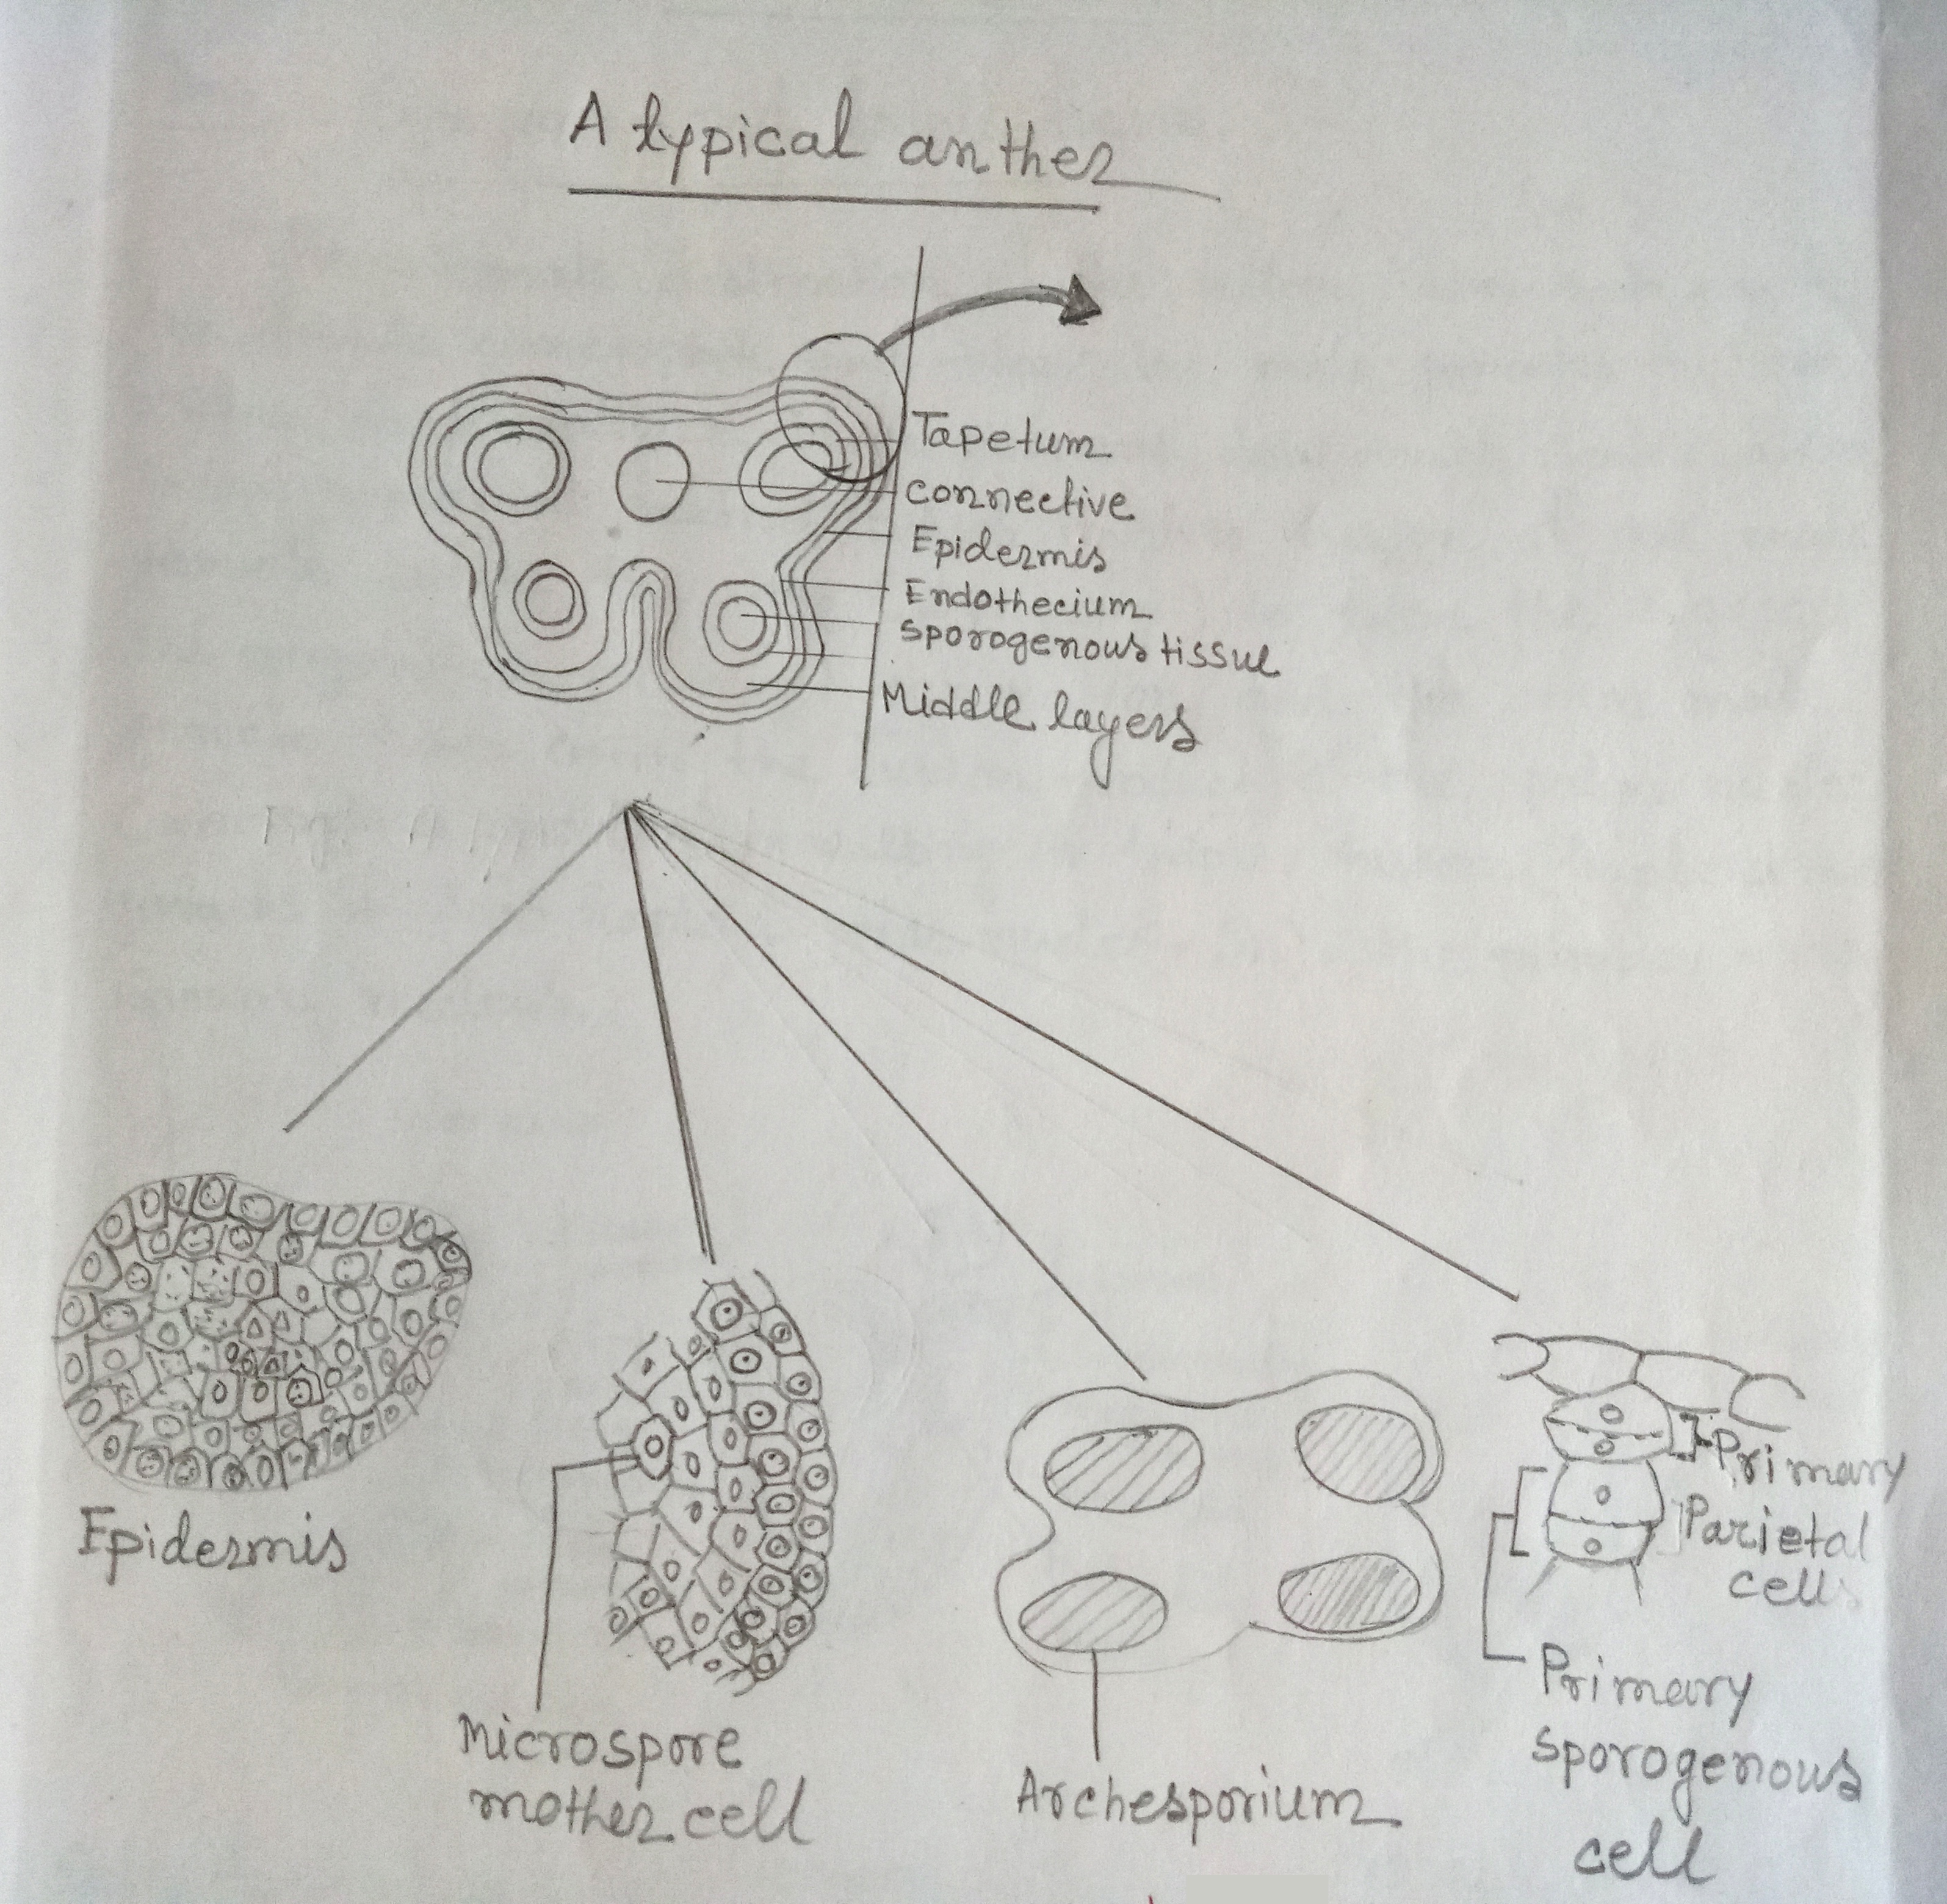 A typical anther
Tapetum
connective
Epidermis
Endothecium
sporogenous tissue
Middle layers
Epidermis
Microspore
mother cell
Archesporium
Primary
Parietal
cells
Primary
sporogenous
cell